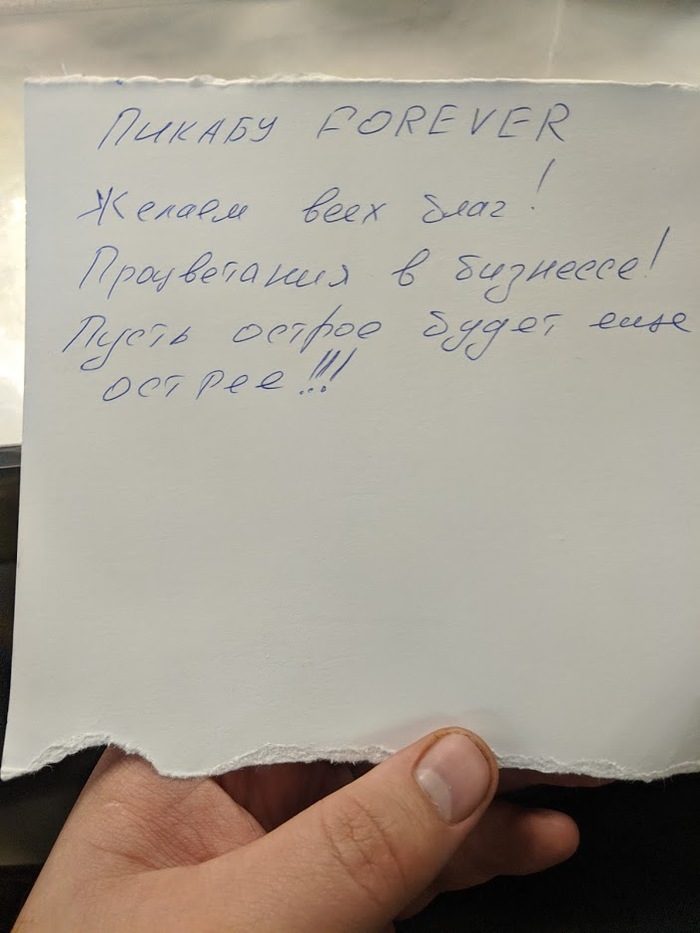 Пикабу FOREVER
Желаем всех благ!
Процветания в бизнессе!
Пусть острое будет еще
острее!!!